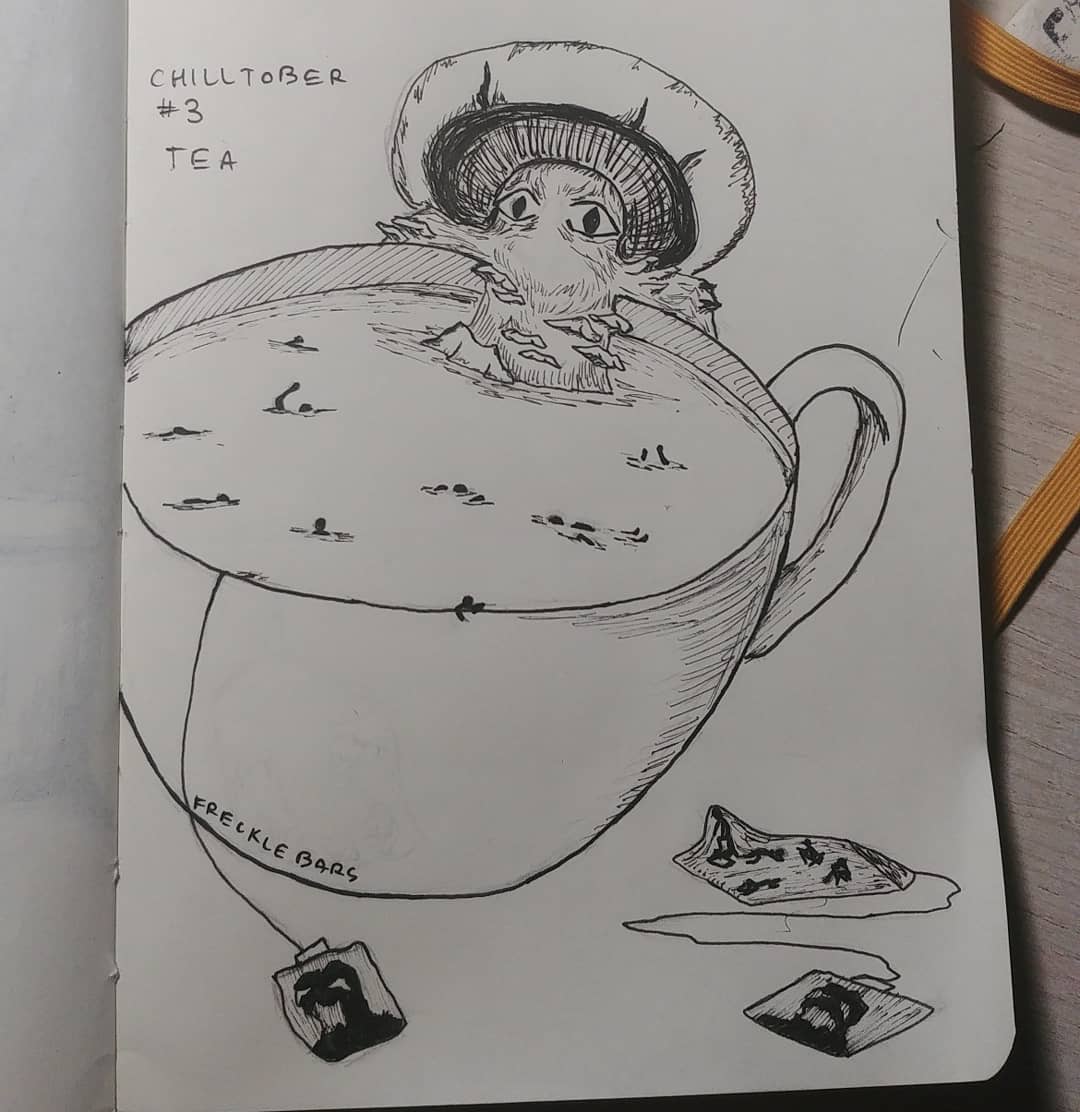 CHILLTOBER
#3
TEA
FRECKLE BARS